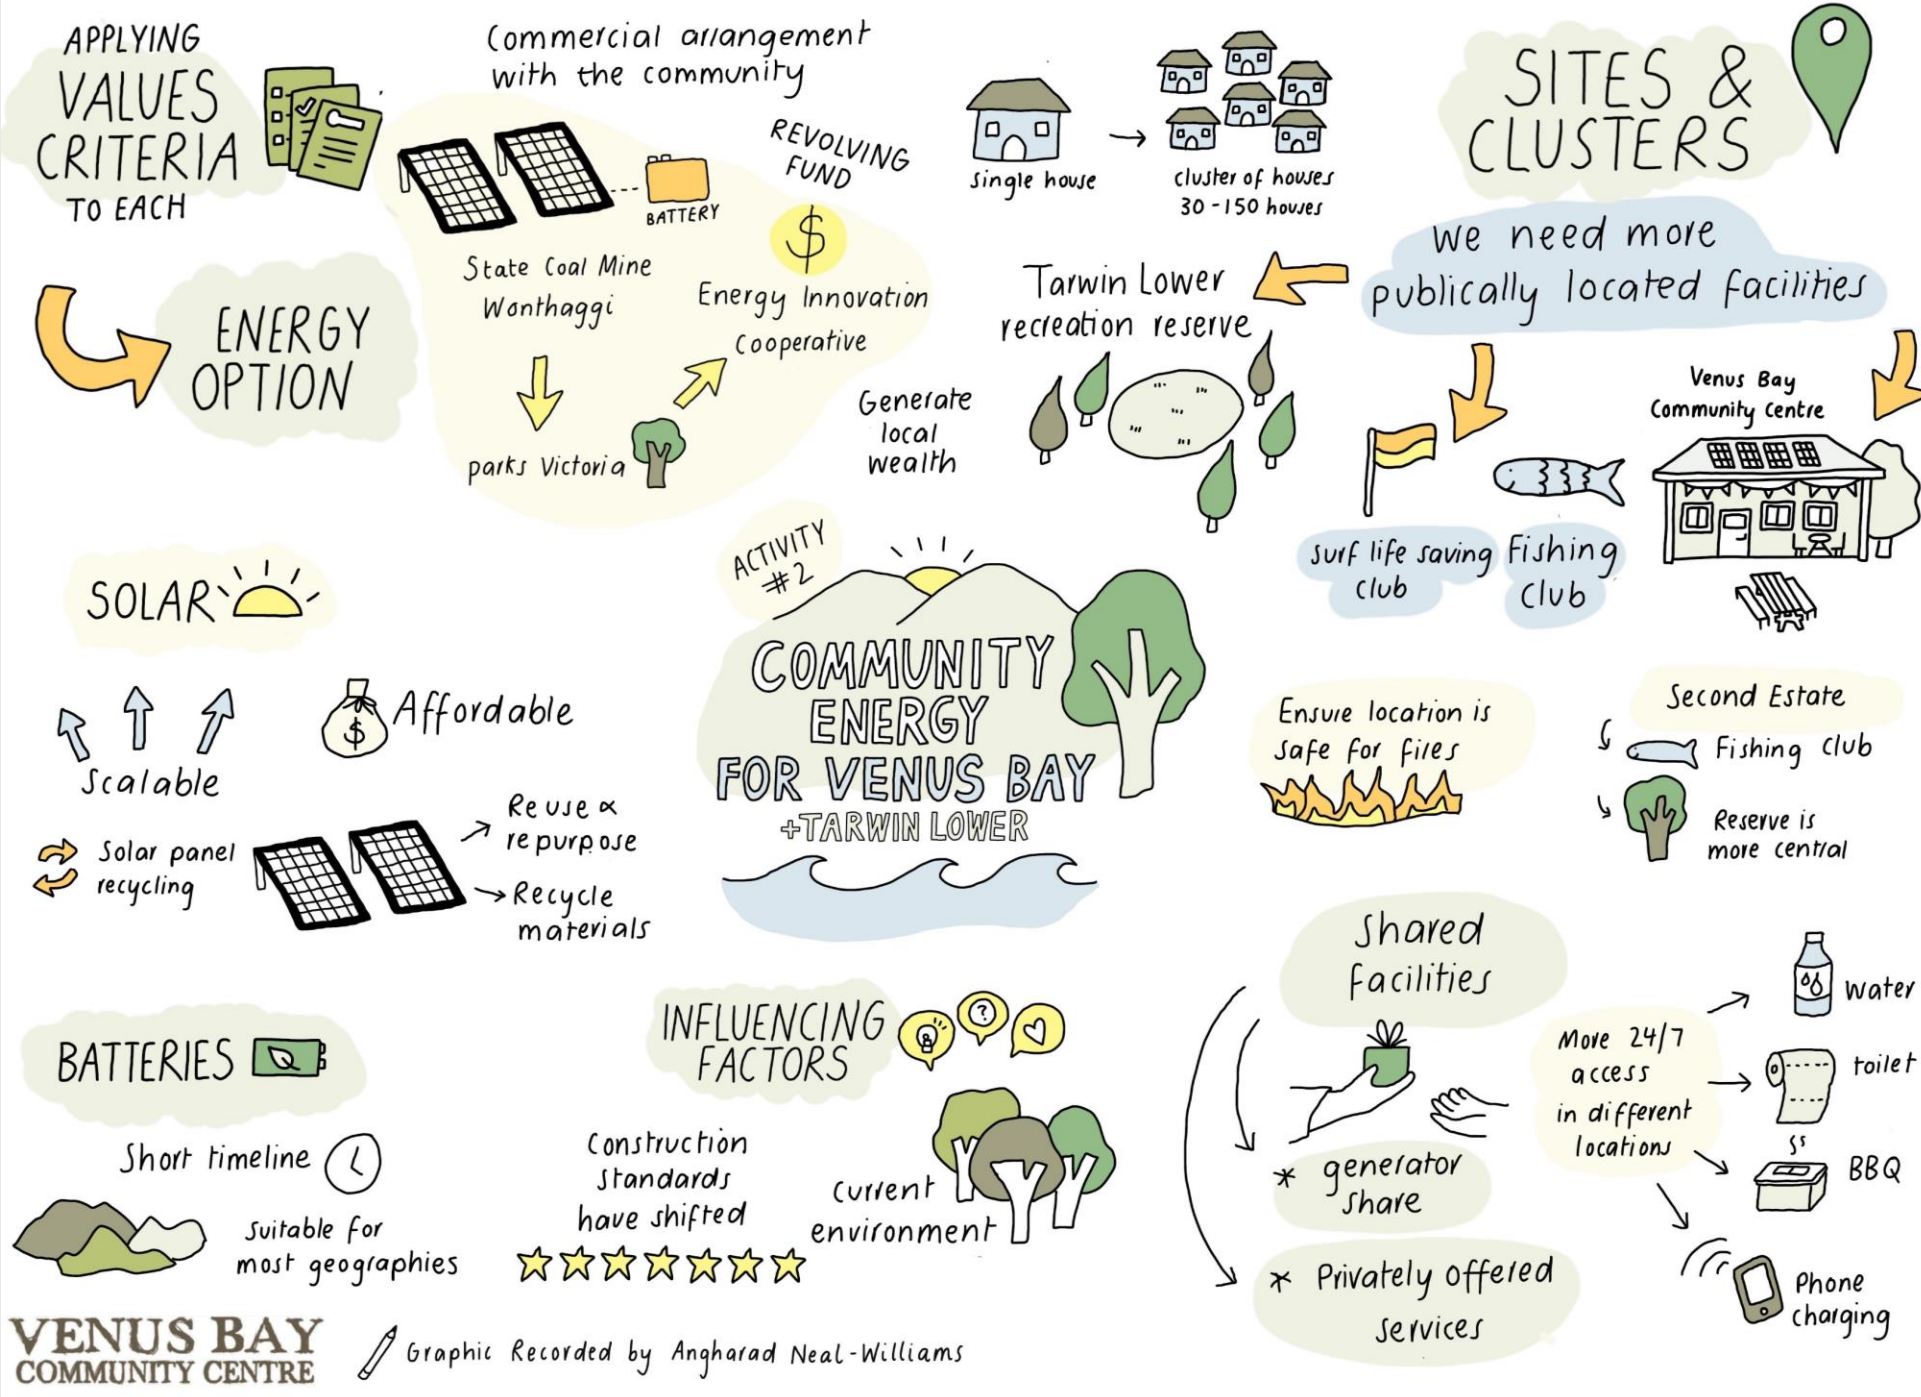 APPLYING
VALUES
CRITERIA
TO EACH
ENERGY
OPTION
Commercial arrangement
with the community
BATTERY
REVOLVING
FUND
$
State Coal Mine
Wonthaggi
Energy Innovation
Cooperative
parks Victoria
Generate
local
wealth
single house
cluster of houses
30-150 houses
SITES &
CLUSTERS
We need more
publically located facilities
Tarwin Lower
recreation reserve
surf life saving
club
Fishing
Club
Venus Bay
Community Centre
SOLAR
Scalable
$
Affordable
Solar panel
recycling
Reuse &
repurpose
Recycle
materials
ACTIVITY
#2
COMMUNITY
ENERGY
FOR VENUS BAY
+TARWIN LOWER
Ensure location is
safe for fires
Second Estate
Fishing club
Reserve is
more central
BATTERIES
Short timeline
suitable for
most geographies
INFLUENCING
FACTORS
?
Construction
standards
have shifted
current
environment
Shared
facilities
* generator
share
* Privately offered
services
More 24/7
access
in different
locations
water
toilet
BBQ
Phone
charging
VENUS BAY
COMMUNITY CENTRE
Graphic Recorded by Angharad Neal-Williams